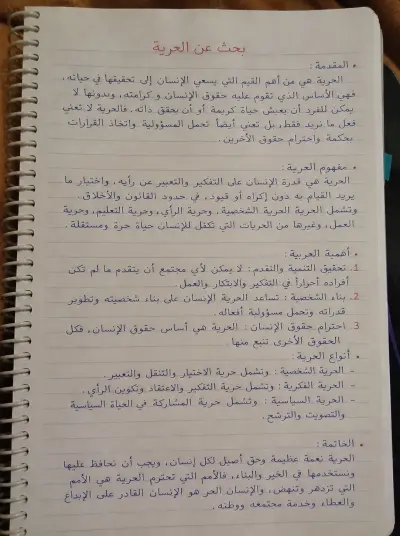 بحث عن الحرية
• المقدمة :
الحرية هي من أهم القيم التي يسعى الإنسان إلى تحقيقها في حياته،
فهي الأساس الذي تقوم عليه حقوق الإنسان و كرامته، وبدونها لا
يمكن للفرد أن يعيش حياة كريمة أو أن يحقق ذاته. فالحرية لا تعني
فعل ما نريد فقط، بل تعني أيضاً تحمل المسؤولية واتخاذ القرارات
بحكمة واحترام حقوق الآخرين.
• مفهوم الحرية :
الحرية هي قدرة الإنسان على التفكير والتعبير عن رأيه، واختيار ما
يريد القيام به دون إكراه أو قيود، في حدود القانون والأخلاق.
وتشمل الحرية الحرية الشخصية، وحرية الرأي، وحرية التعليم، وحرية
العمل، وغيرها من الحريات التي تكفل للإنسان حياة حرة ومستقلة.
• أهمية الحرية :
1. تحقيق التنمية والتقدم : لا يمكن لأي مجتمع أن يتقدم ما لم تكن
أفراده أحراراً في التفكير والابتكار والعمل.
2. بناء الشخصية : تساعد الحرية الإنسان على بناء شخصيته وتطوير
قدراته وتحمل مسؤولية أفعاله.
3. احترام حقوق الإنسان : الحرية هي أساس حقوق الإنسان، فكل
الحقوق الأخرى تنبع منها.
• أنواع الحرية :
- الحرية الشخصية : وتشمل حرية الاختيار والتنقل والتعبير.
- الحرية الفكرية : وتشمل حرية التفكير والاعتقاد وتكوين الرأي.
- الحرية السياسية : وتشمل حرية المشاركة في الحياة السياسية
والتصويت والترشح.
• الخاتمة :
الحرية نعمة عظيمة وحق أصيل لكل إنسان، ويجب أن نحافظ عليها
ونستخدمها في الخير والبناء، فالأمم التي تحترم الحرية هي الأمم
التي تزدهر وتنهض، والإنسان الحر هو الإنسان القادر على الإبداع
والعطاء وخدمة مجتمعه ووطنه.